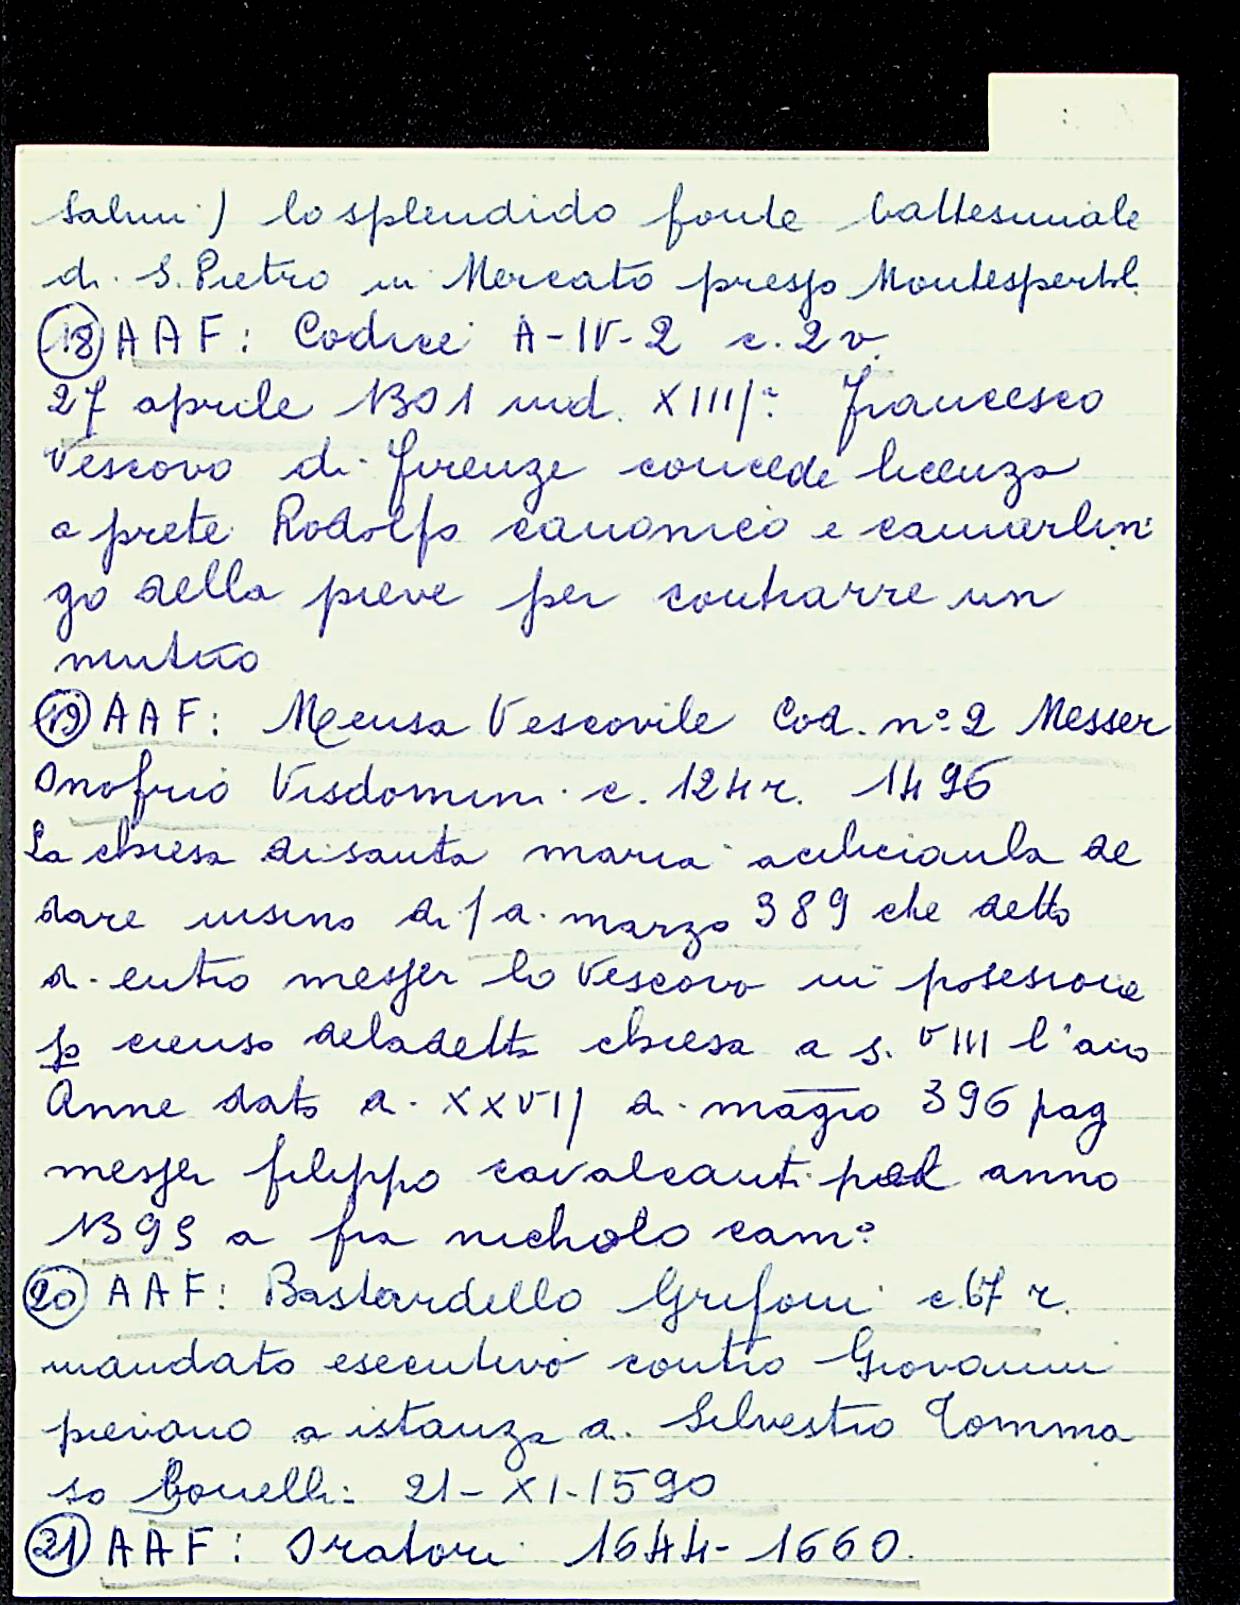 Salmi) lo splendido fonte battesimale
di S. Pietro in Mercato presso Montespertol.
(18) AAF: Codice A-IV-2 c. 2v.
27 aprile 1301 ind. XIIIIª Francesco
Vescovo di Firenze concede licenza
a prete Rodolfo canonico e camarlin
go della pieve per contrarre un
mutuo
(19) AAF: Mensa Vescovile Cod. nº 2 Messer
Onofrio Visdomini c. 124r. 1496
La chiesa di santa maria aciliciaula de
dare insino di 1 di marzo 389 che detto
di entrò messer lo Vescovo in posessione
p cienso dela detta chiesa a s. VIII l'ano
Anne dato di XXVII di magio 396 pag
messer filippo cavalcanti pel anno
1395 a fra nicholo camº
(20) AAF: Bastardello Grifoni c. 67 r.
mandato esecutivo contro Giovanni
pievano a istanza di Silvestro Tomma
so Bonelli: 21-XI-1590
(21) AAF: Oratori 1644-1660.